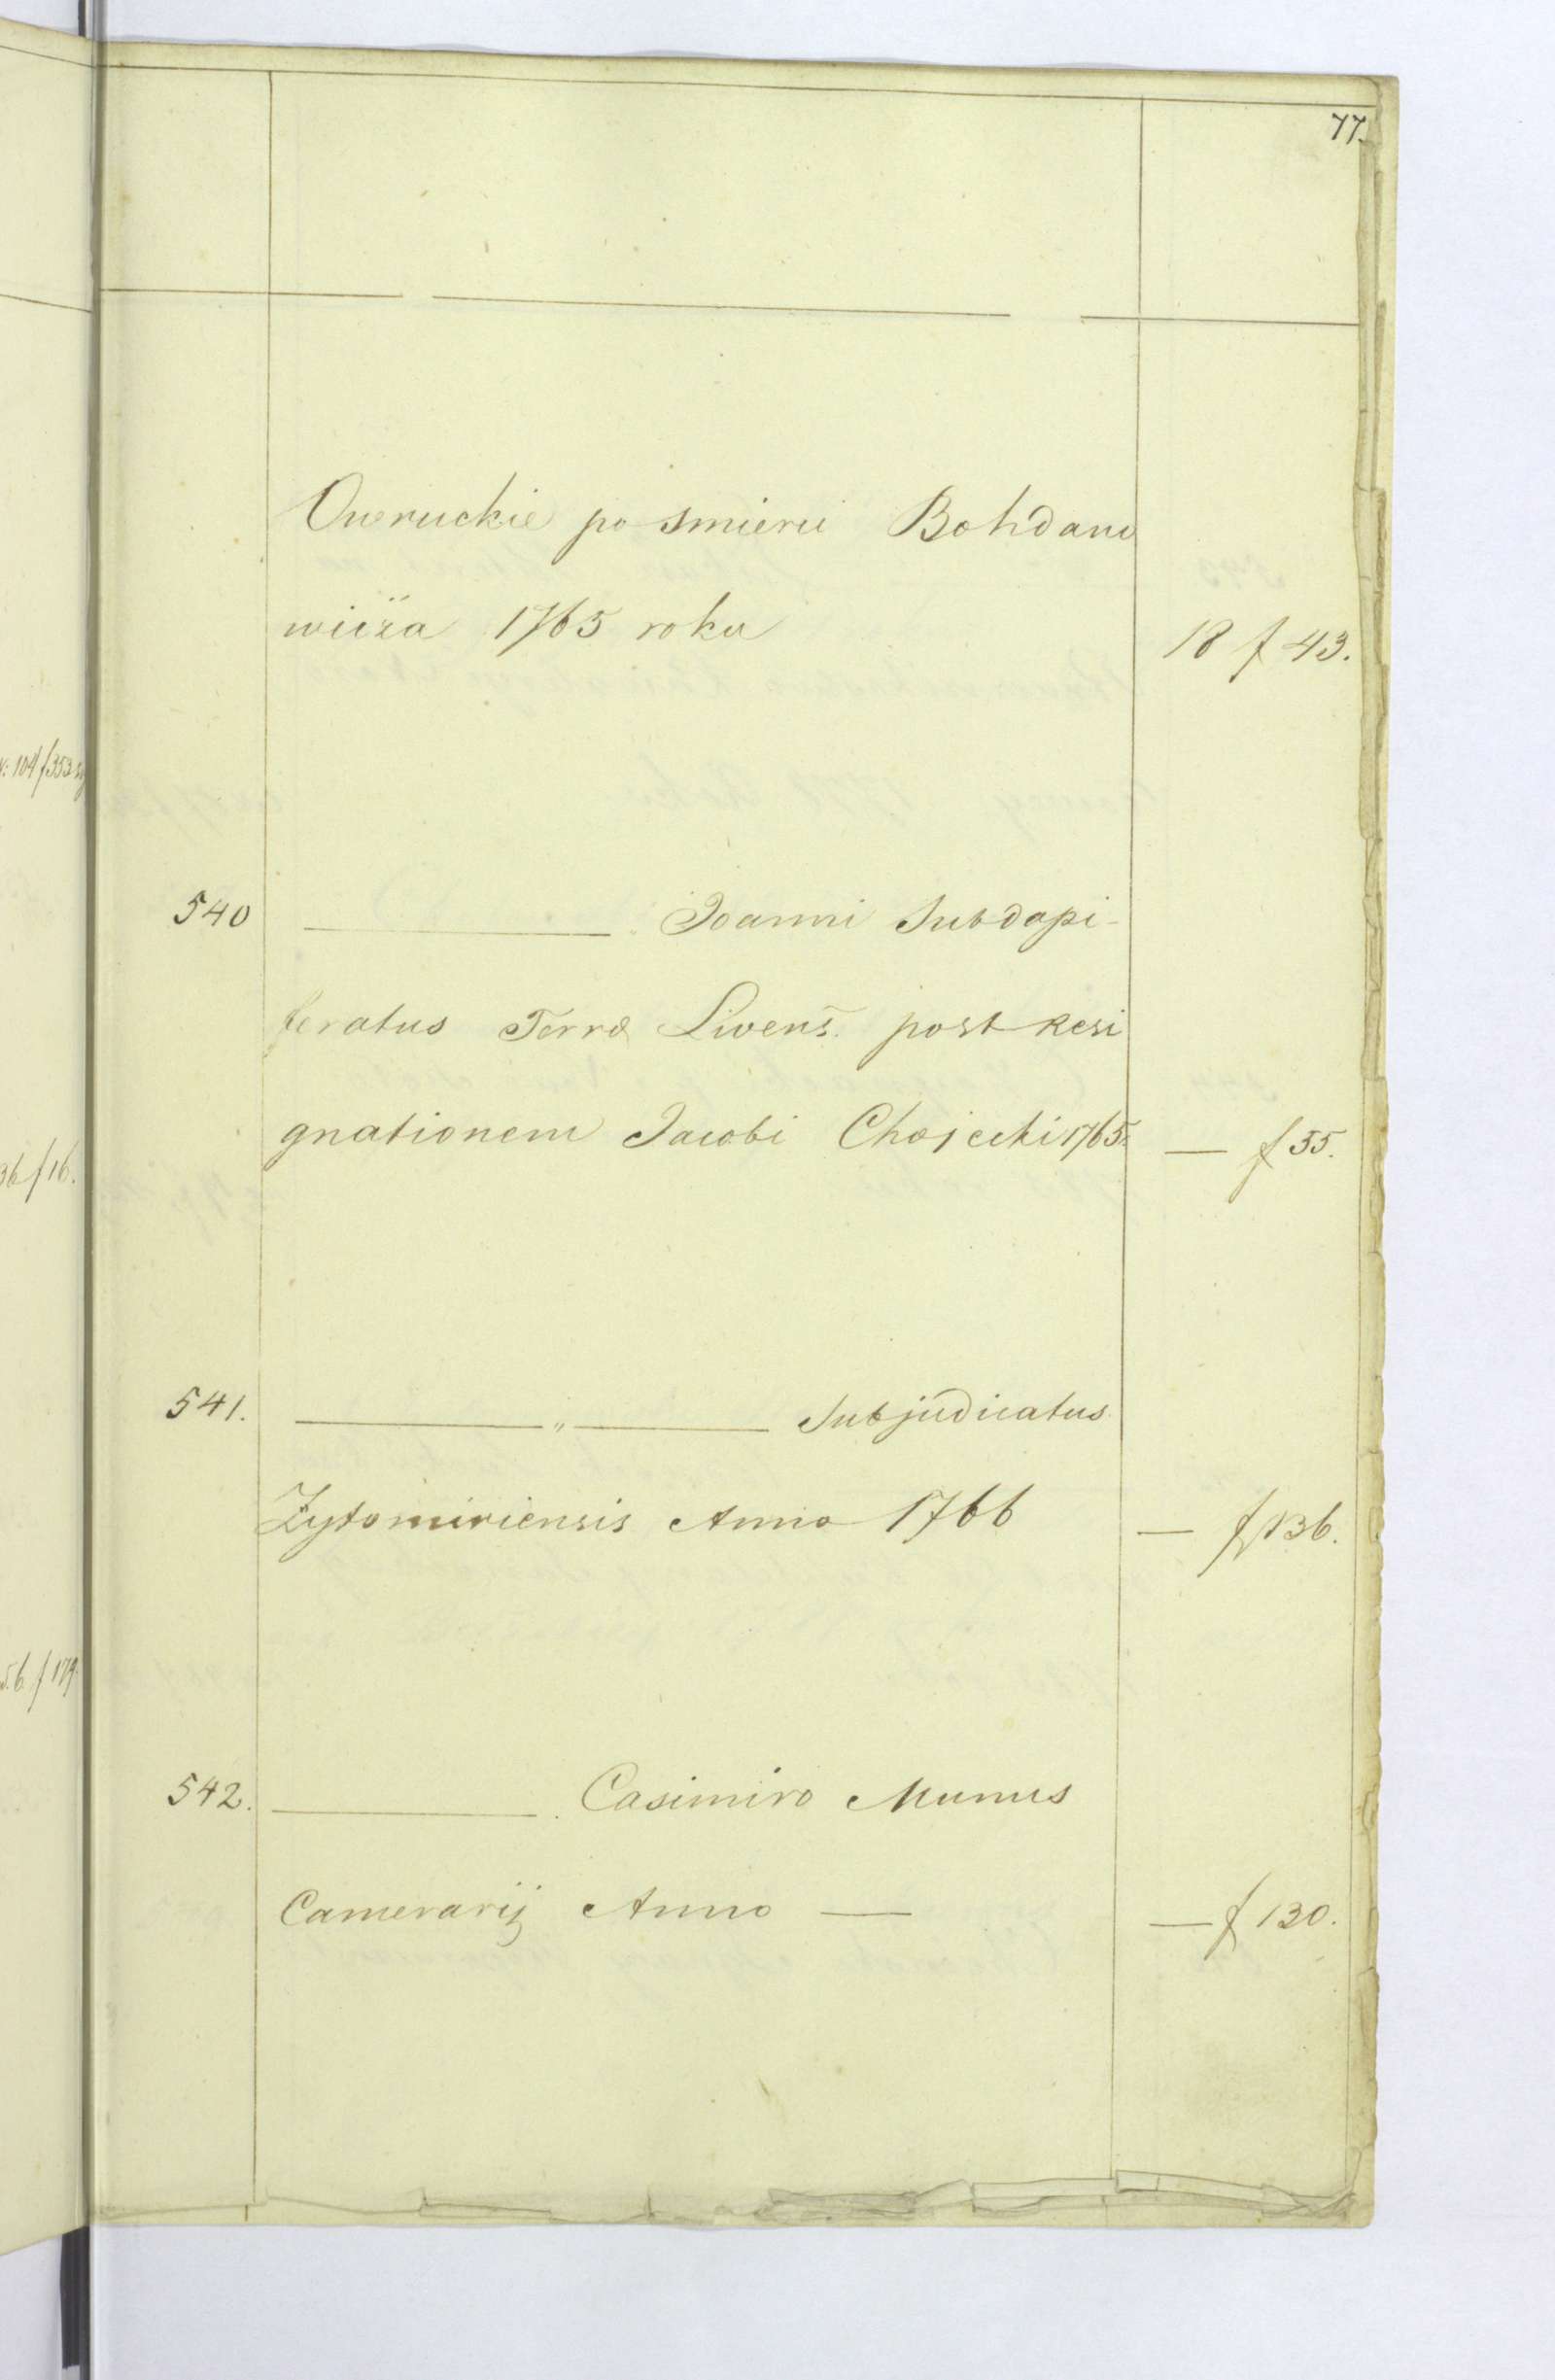 77.
Owruckie po smierci Bohdano
wicza 1765 roku 18 f 43.
540 ——— Joanni Subdapi-
feratus Terræ Livens. post Resi
gnationem Jacobi Chojecki 1765. — f 55.
541. ——— „ ——— Subjudicatus
Zytomiriensis Anno 1766 — f 136.
542. ———. Casimiro Munus
Camerarij Anno — — f 130.